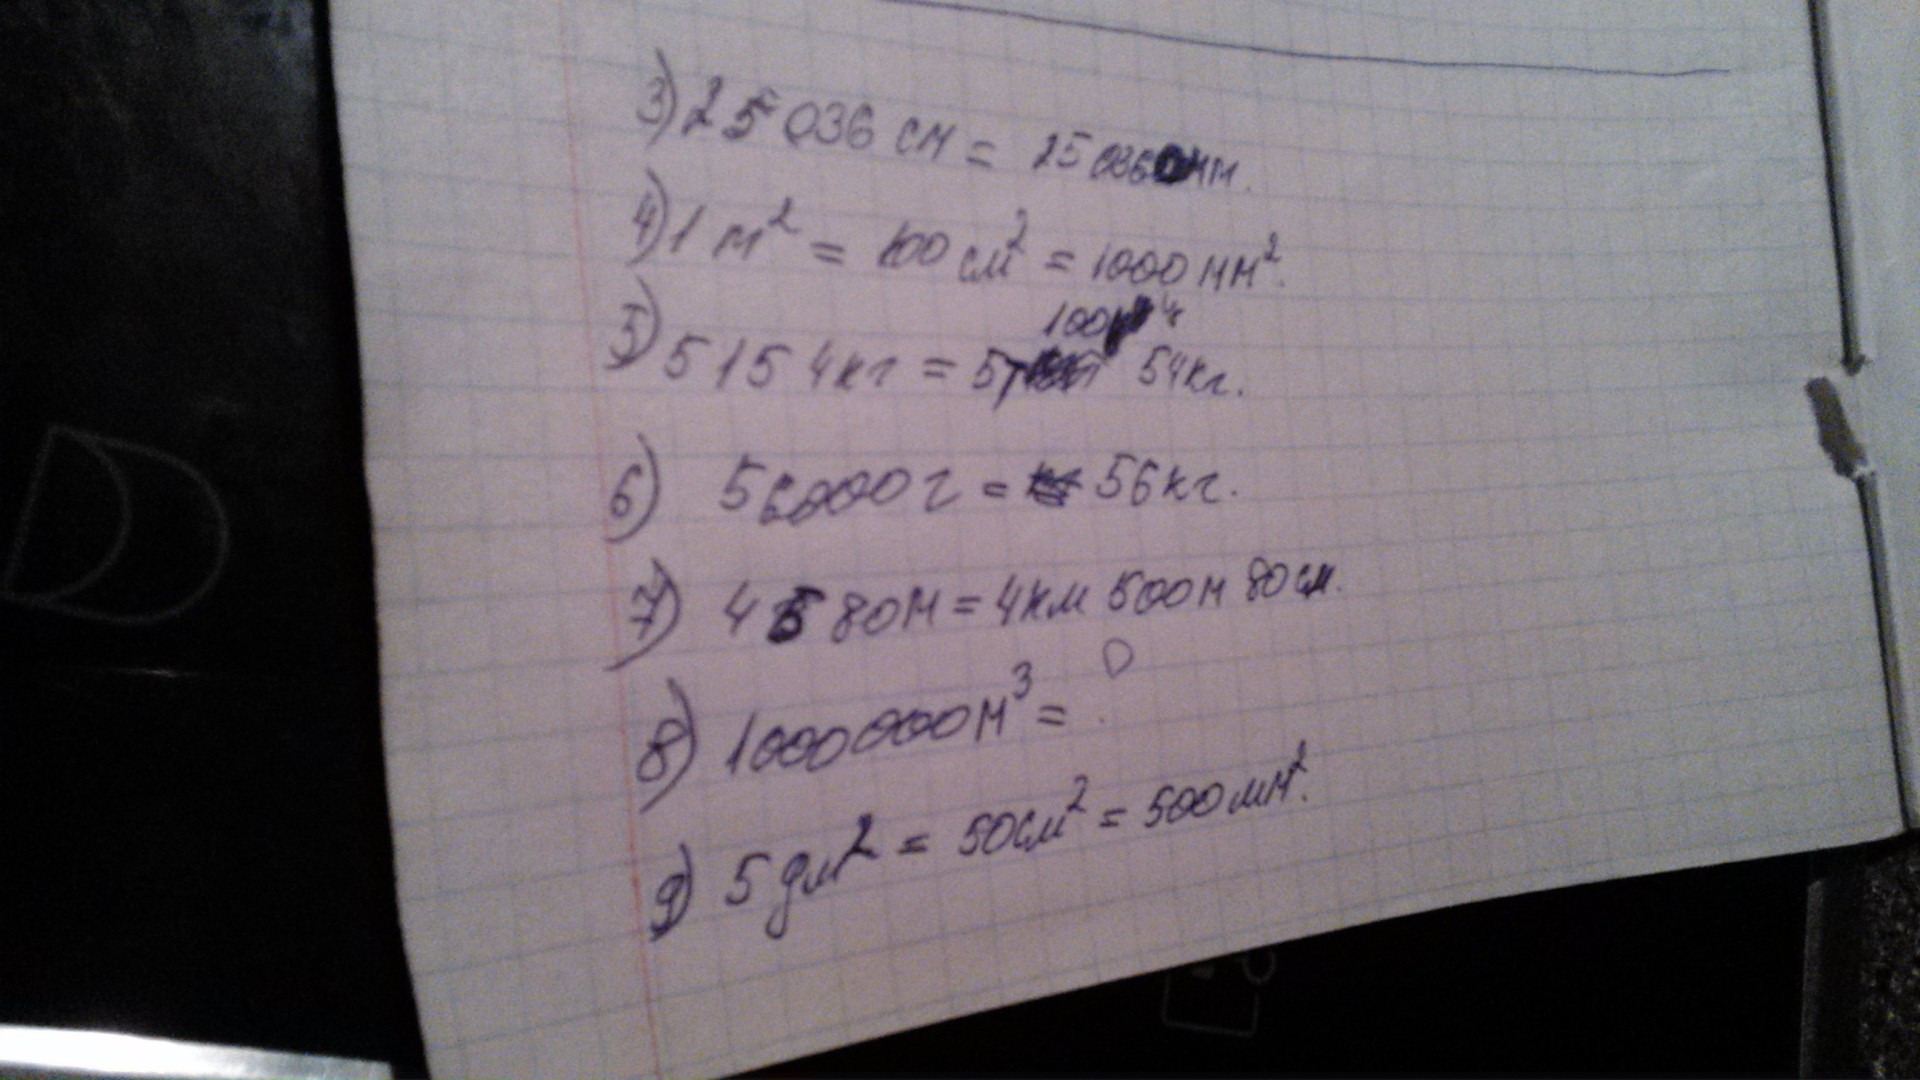 3) 25 036 см = 250360мм.
4) 1 м² = 100 см² = 1000 мм².
5) 5154кг = 5т 100 54кг.
6) 56000г = 56кг.
7) 4580м = 4км 500м 80см.
8) 1000000м³ =
9) 5дм² = 50см² = 500мм².